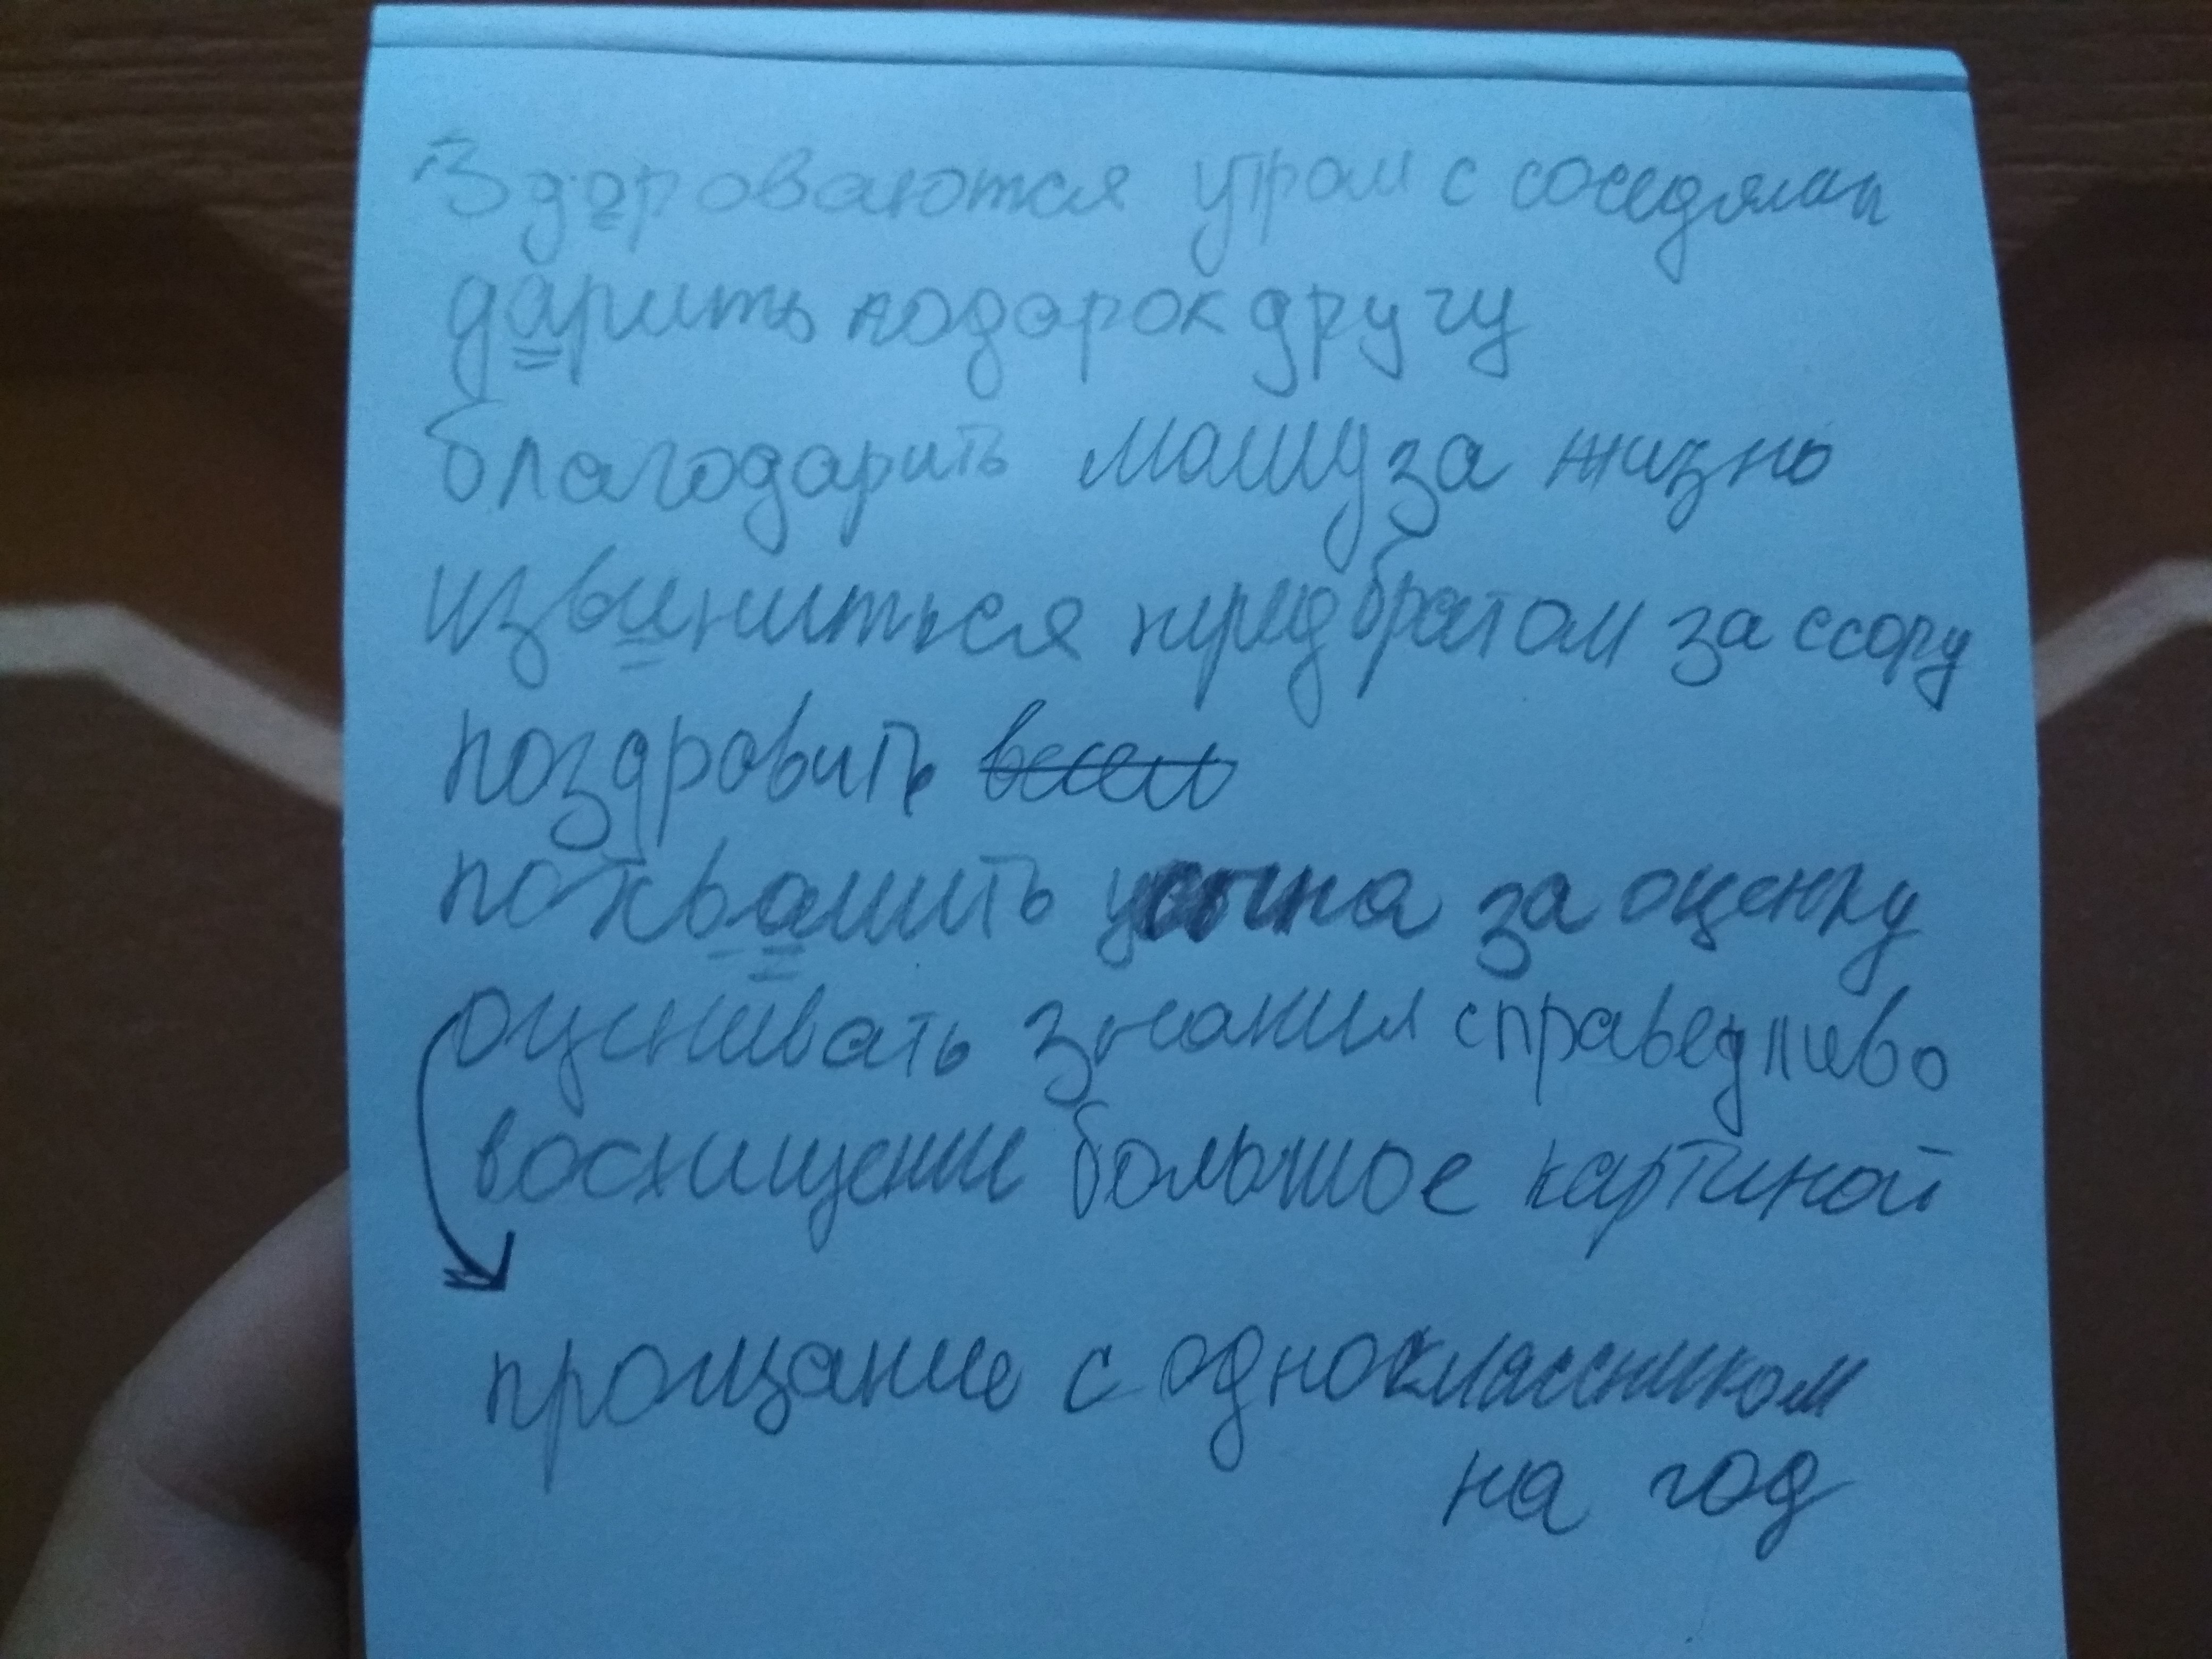 Здороваются утром с соседями
дарить подарок другу
благодарить машу за жизнь
извиниться перед братом за ссору
поздравить
похвалить сына за оценку
оценивать знания справедливо
восхищение большое картиной
прощание с одноклассником
на год